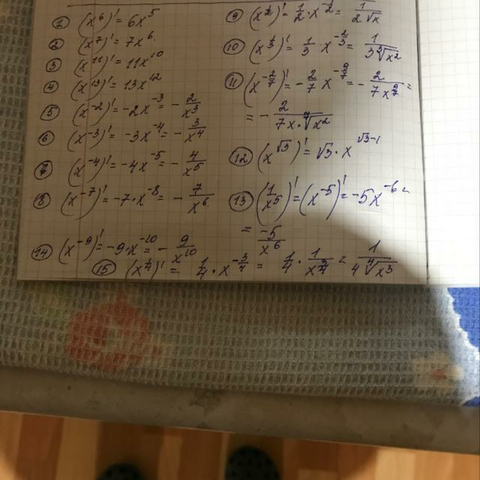 ② (x⁶)' = 6x⁵
② (x⁷)' = 7x⁶
③ (x¹¹)' = 11x¹⁰
④ (x¹³)' = 13x¹²
⑤ (x⁻²)' = -2x⁻³ = - 2/x³
⑥ (x⁻³)' = -3x⁻⁴ = - 3/x⁴
⑦ (x⁻⁴)' = -4x⁻⁵ = - 4/x⁵
⑧ (x⁻⁷)' = -7·x⁻⁸ = - 7/x⁶
⑭ (x⁻⁹)' = -9·x⁻¹⁰ = - 9/x¹⁰
⑨ (x^(1/2))' = 1/2 · x^(-1/2) = 1/(2√x)
⑩ (x^(1/3))' = 1/3 x^(-2/3) = 1/(3∛x²)
⑪ (x^(-2/7))' = - 2/7 x^(-9/7) = - 2/(7x^(9/7)) =
= - 2/(7x·⁷√x²)
⑫ (x^√3)' = √3 · x^(√3-1)
⑬ (1/x⁵)' = (x⁻⁵)' = -5x⁻⁶ =
= -5/x⁶
⑮ (x^(1/4))' = 1/4 · x^(-3/4) = 1/4 · 1/x^(3/4) = 1/(4 ⁴√x³)